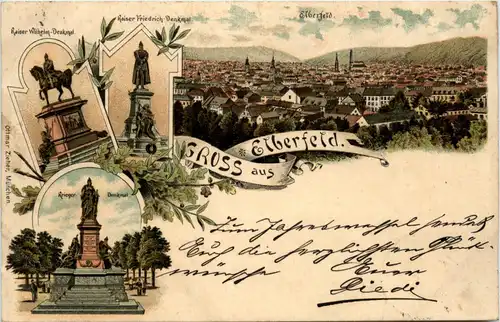 Kaiser Wilhelm-Denkmal
Kaiser Friedrich-Denkmal
Elberfeld.
GRUSS aus Elberfeld.
Krieger Denkmal
Ottmar Zieher, München.
Zum Jahreswechsel sendet
Euch die herzlichsten Glück-
wünsche Euer